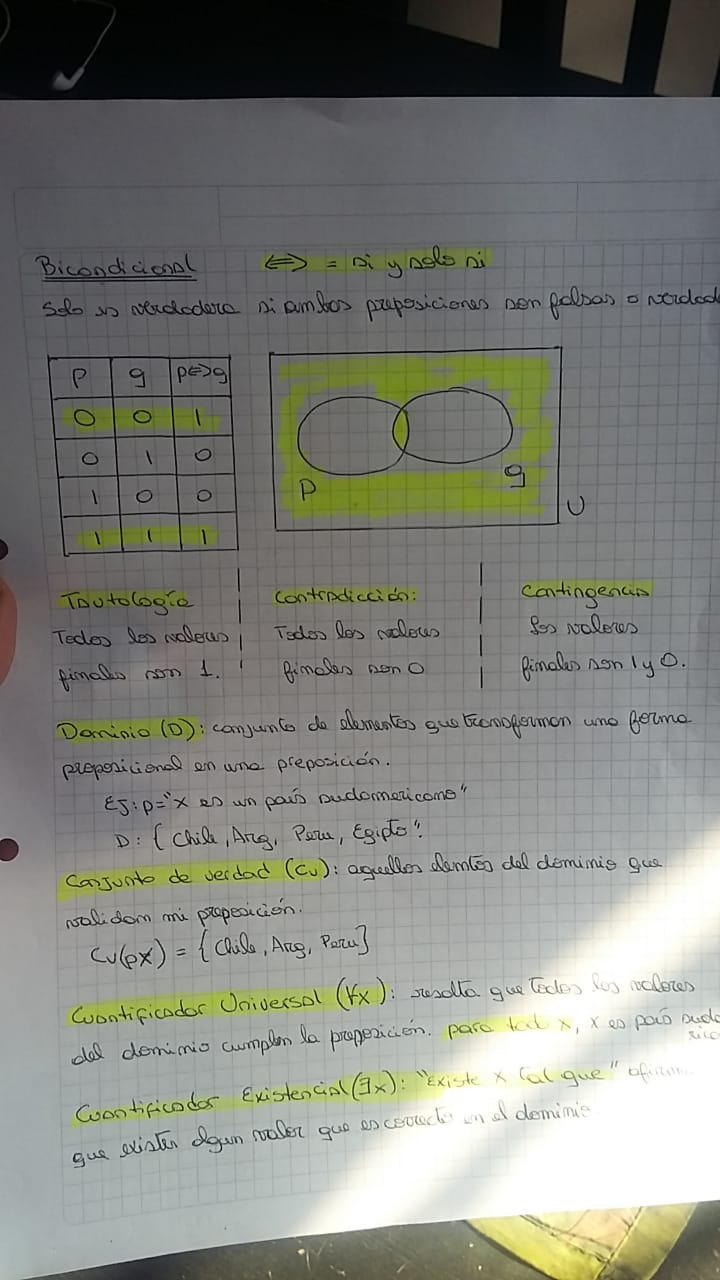 Bicondicional ⟺ = si y solo si
Solo es verdadera si ambas preposiciones son falsas o verdad
p q p⟺q
0 0 1
0 1 0
1 0 0
1 1 1
p q U
Tautología
Todos los valores
finales son 1.
Contradicción:
Todos los valores
finales son 0
Contingencia
Los valores
finales son 1 y 0.
Dominio (D): conjunto de elementos que transforman una forma
preposicional en una preposición.
Ej: p="x es un país sudamericano"
D: { Chile, Arg, Peru, Egipto".
Conjunto de verdad (Cv): aquellos del dominio que
validan mi proposición.
Cv(px) = { Chile, Arg, Peru}
Cuantificador Universal (∀x): resalta que todos los valores
del dominio cumplen la proposición. para tod x, x es país suda
rica
Cuantificador Existencial (∃x): "Existe x tal que"
que existen algun valor que es correcto en el dominio